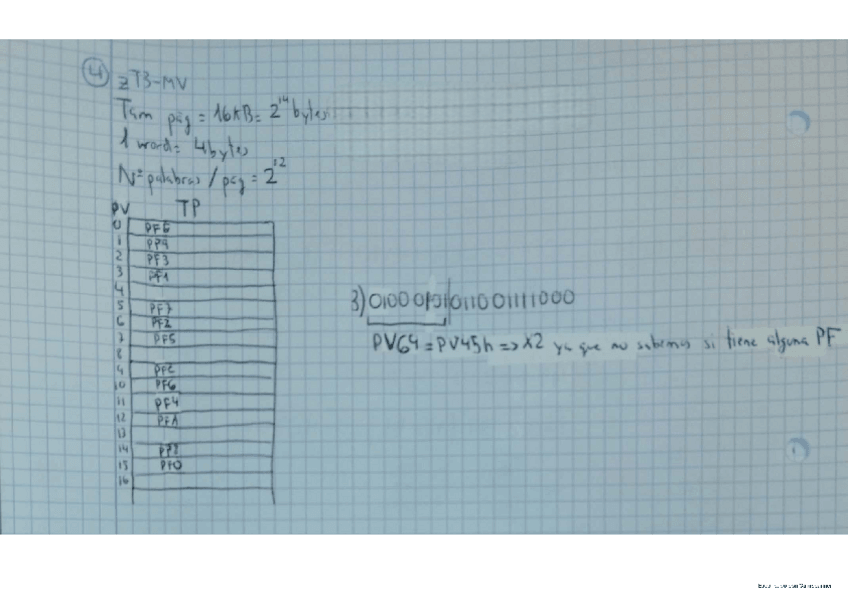 4
zT3-MV
Tam pág = 16KB = 2^14 bytes
1 word = 4 bytes
Nº palabras / pág = 2^12
PV TP
0 PF6
1
2 PF3
3 PF1
4
5 PF7
6 PF2
7 PF5
8
PFE
10 PF6
11 PF4
12 PFA
13
14
15 PF0
16
3) 01000101|011001111000
PV64 = PV45h => X2 ya que no sabemos si tiene alguna PF